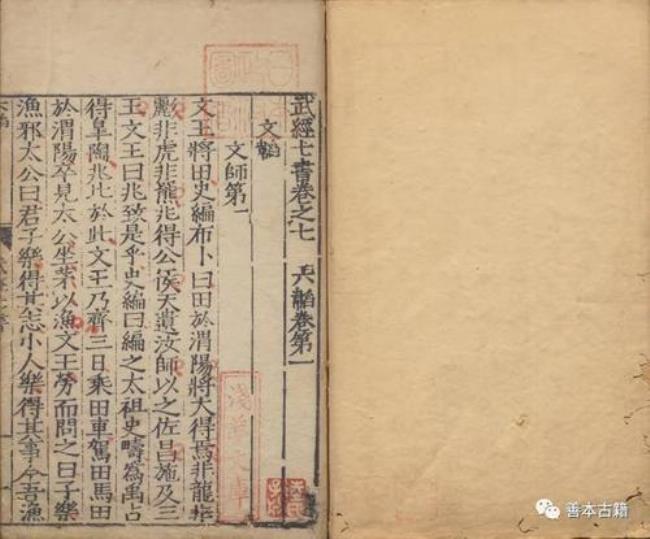 武經七書卷之七 六韜卷第一
文韜
文師第一
文王將田史編布卜曰田於渭陽將大得焉非龍非
彲非虎非熊兆得公侯天遺汝師以之佐昌施及三
王文王曰兆致是乎史編曰編之太祖史疇為禹占
得皐陶兆比於此文王乃齊三日乘田車駕田馬田
於渭陽卒見太公坐茅以漁文王勞而問之曰子樂
漁邪太公曰君子樂得其志小人樂得其事今吾漁
淺草文庫
善本古籍